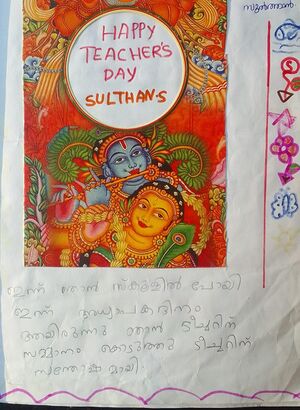 സുൽത്താൻ
HAPPY
TEACHER'S
DAY
SULTHAN.S
ഇന്ന് ഞാൻ സ്കൂളിൽ പോയി
ഇന്ന് അധ്യാപകദിനം
ആയിരുന്നു ഞാൻ ടീച്ചറിന്
സമ്മാനം കൊടുത്തു ടീച്ചറിന്
സന്തോഷമായി.